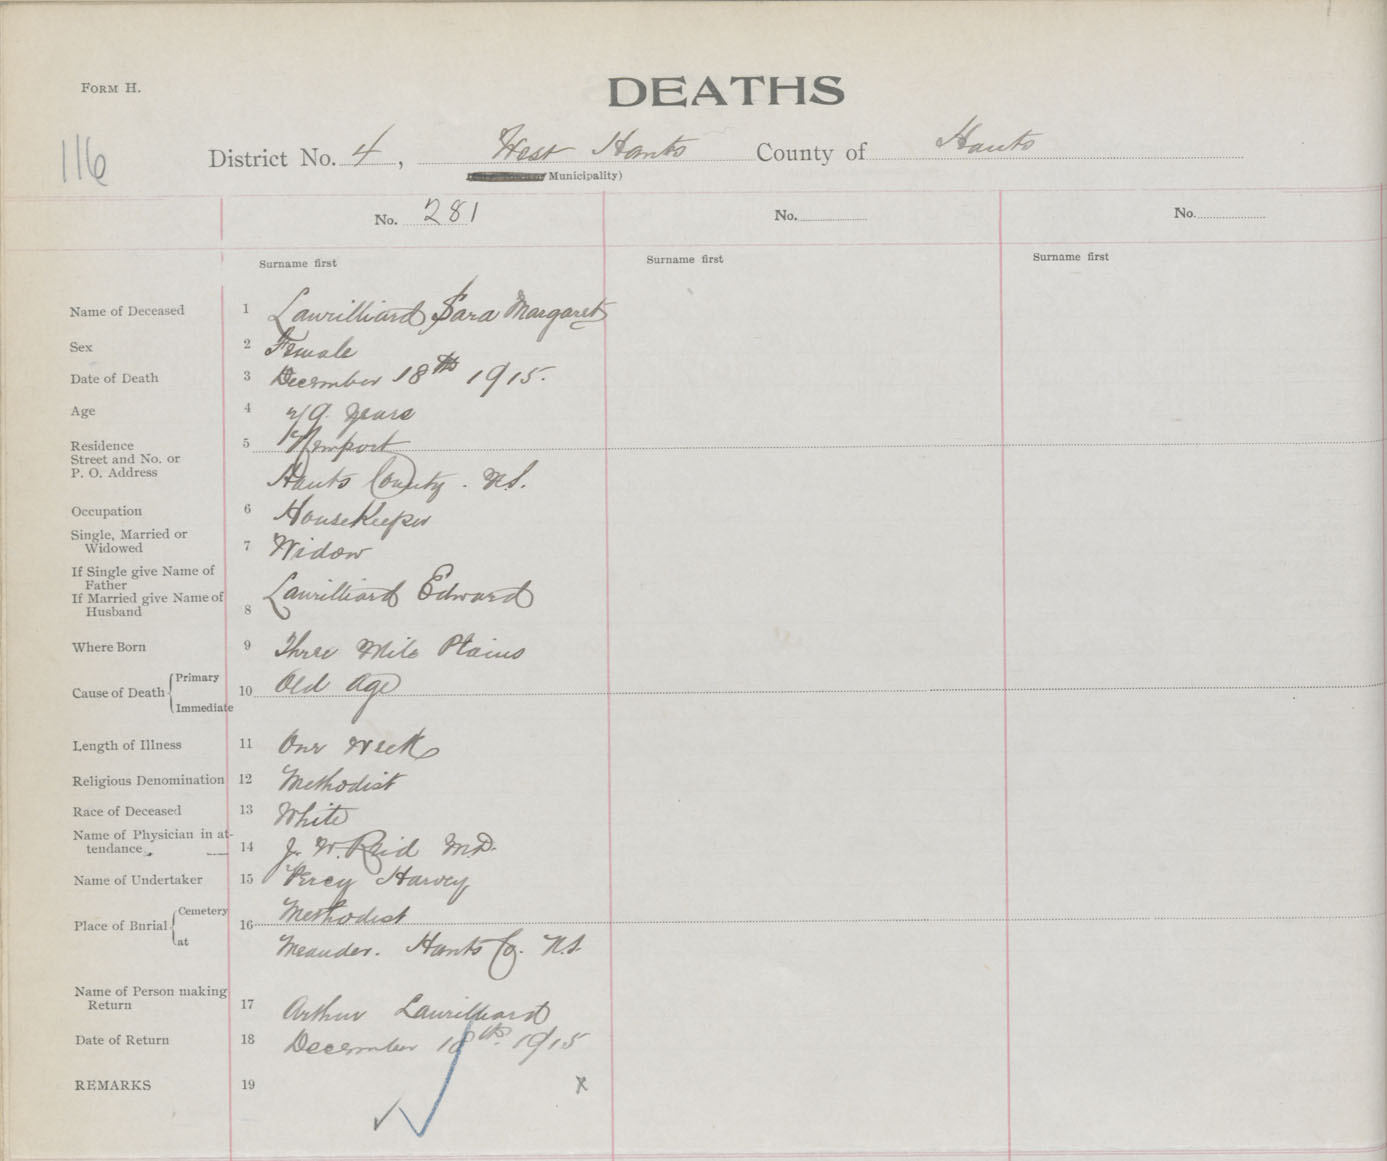 Form H.
DEATHS
116
District No. 4, West Hants County of Hants
Municipality)
No. 281 No. No.
Surname first Surname first Surname first
Name of Deceased 1 Laurilliard, Sara Margaret
Sex 2 Female
Date of Death 3 December 18th 1915.
Age 4 79 years
Residence 5 Newport
Street and No. or
P. O. Address Hants County. N.S.
Occupation 6 HouseKeeper
Single, Married or
Widowed 7 Widow
If Single give Name of
Father
If Married give Name of
Husband 8 Laurilliard Edward
Where Born 9 Three Mile Plains
Cause of Death { Primary 10 Old Age
Immediate
Length of Illness 11 One week
Religious Denomination 12 Methodist
Race of Deceased 13 White
Name of Physician in at-
tendance 14 J. W. Reid M.D.
Name of Undertaker 15 Percy Harvey
Place of Burial { Cemetery 16 Methodist
at Meander. Hants Co. N.S.
Name of Person making
Return 17 Arthur Laurilliard
Date of Return 18 December 18th. 1915
REMARKS 19 x